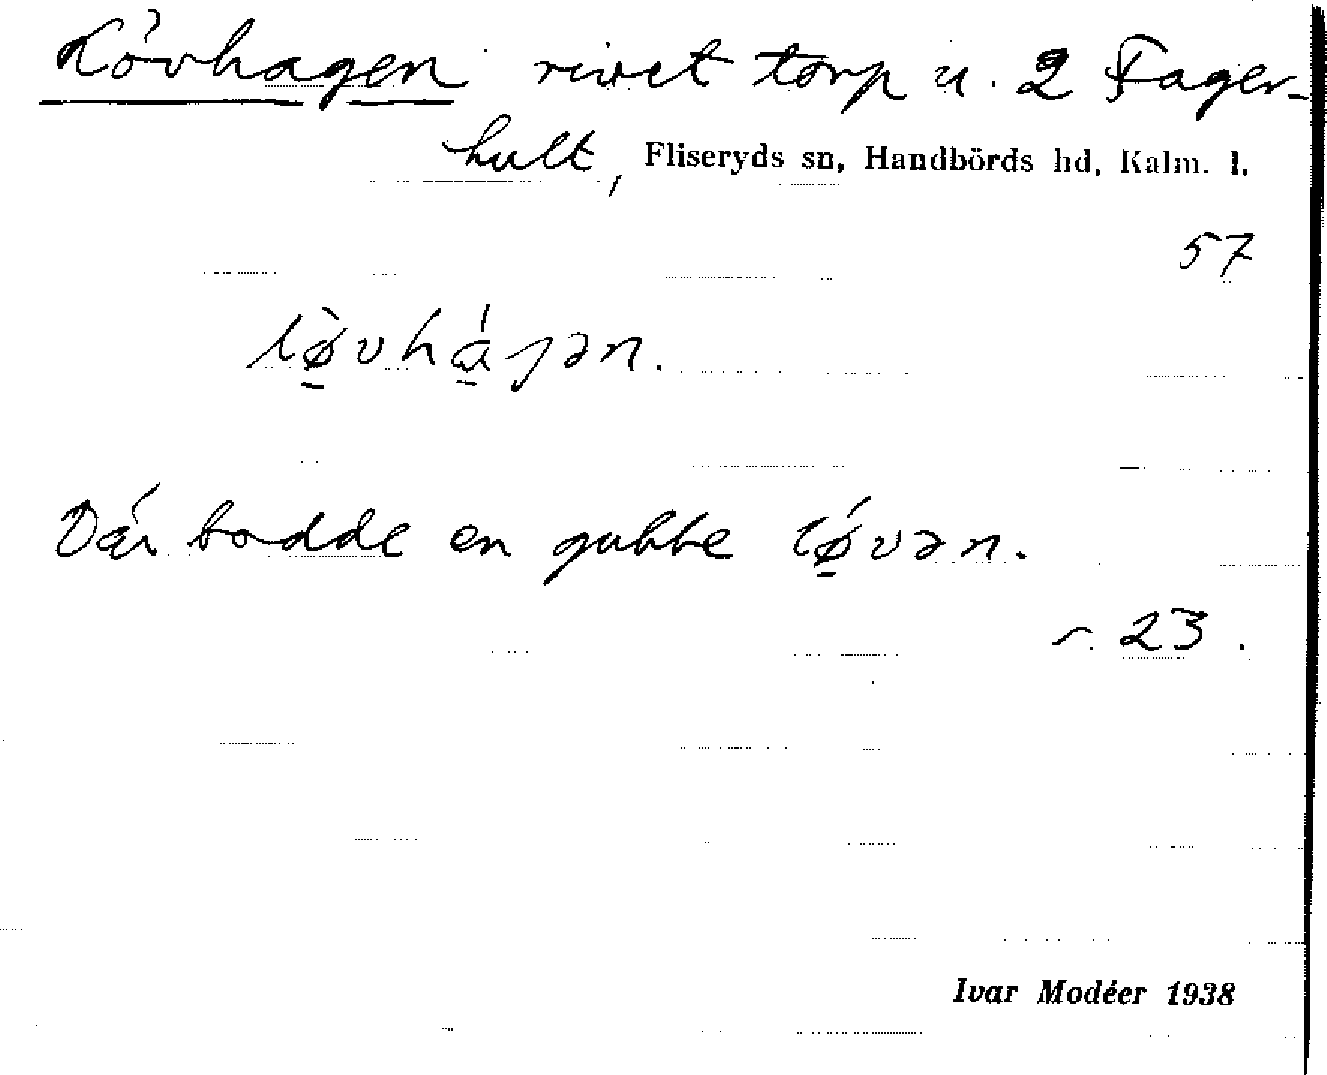 Lövhagen rivet torp u. 2 Fager-
hult, Fliseryds sn, Handbörds hd, Kalm. l.
57
lø̀vhágən.
Där bodde en gubbe lǿvən.
23.
Ivar Modéer 1938